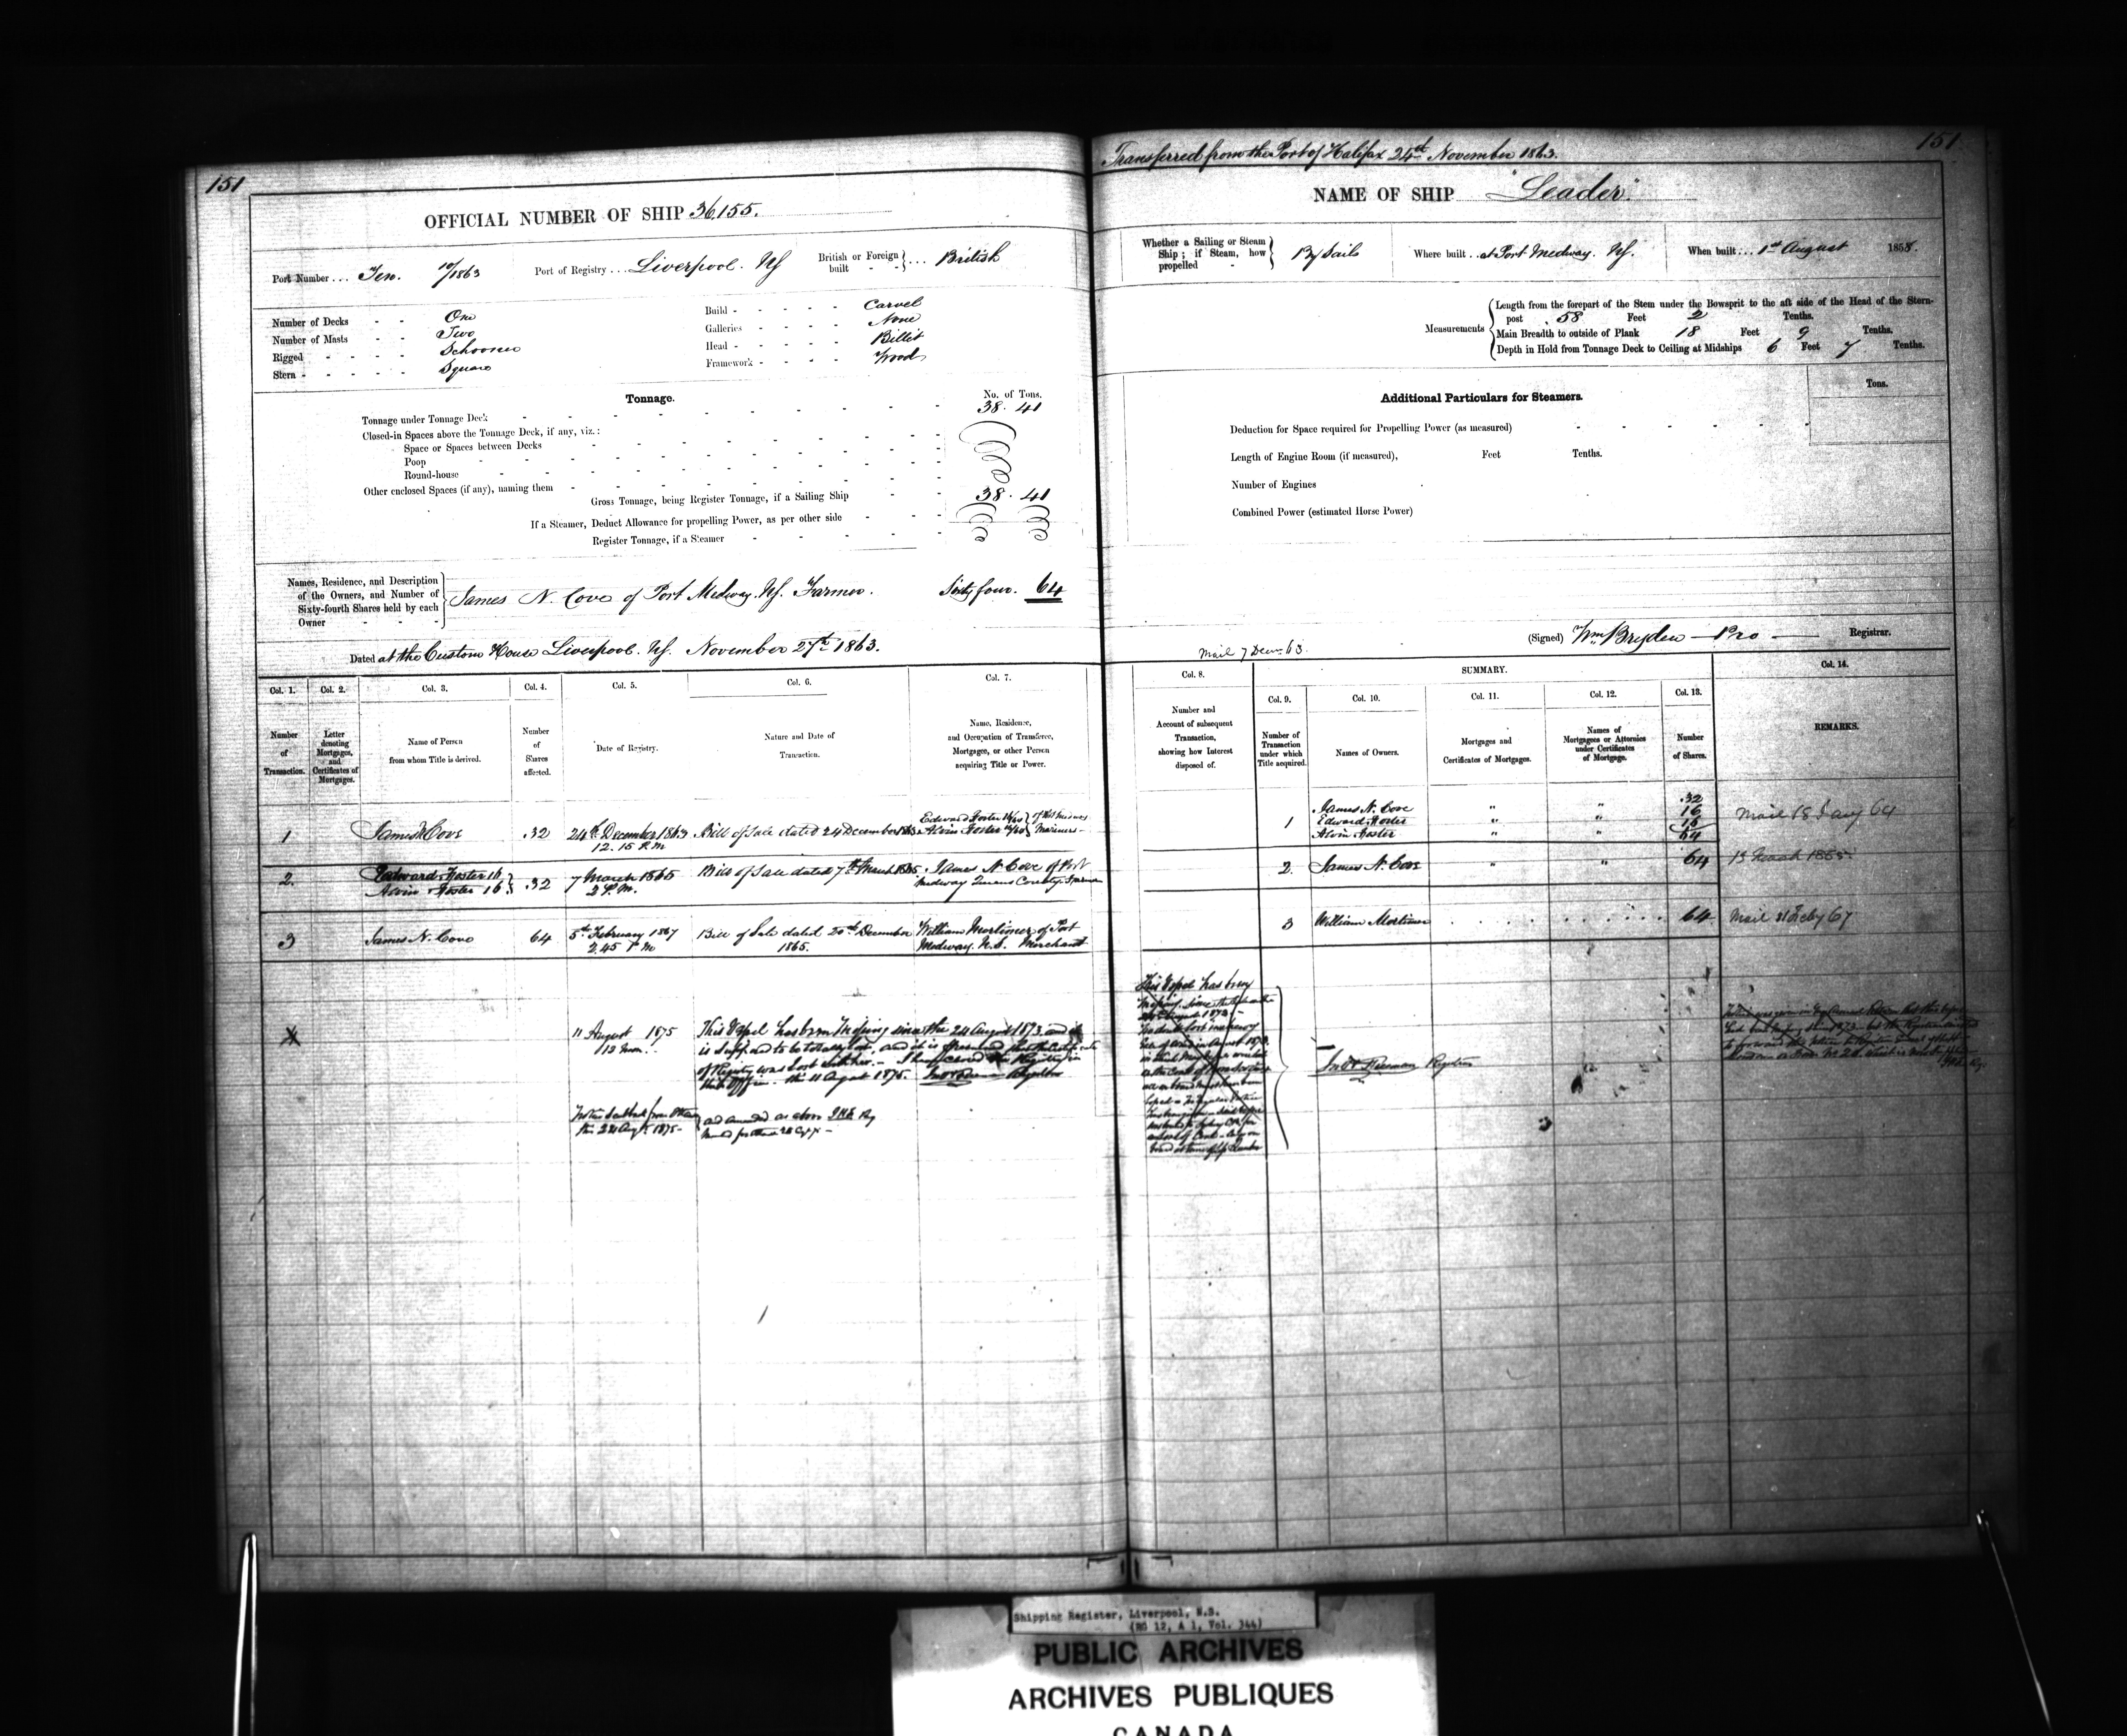 151
OFFICIAL NUMBER OF SHIP 36,155.
Port Number ... Ten. 10/1863 Port of Registry ... Liverpool. NS British or Foreign built - - } ... British
Number of Decks - - One
Number of Masts - - Two
Rigged - - - - - Schooner
Stern - - - - - - Square
Build - - - - - Carvel
Galleries - - - - None
Head - - - - - Billet
Framework - - - - Wood
Tonnage. No. of Tons.
Tonnage under Tonnage Deck 38. 41
Closed-in Spaces above the Tonnage Deck, if any, viz.:
Space or Spaces between Decks
Poop
Round-house
Other enclosed Spaces (if any), naming them
Gross Tonnage, being Register Tonnage, if a Sailing Ship 38. 41
If a Steamer, Deduct Allowance for propelling Power, as per other side
Register Tonnage, if a Steamer
Names, Residence, and Description
of the Owners, and Number of
Sixty-fourth Shares held by each
Owner - - -
James N. Cove of Port Medway. NS. Farmer. Sixty four. 64
Dated at the Custom House Liverpool. NS. November 27th 1863.
Col. 1. Col. 2. Col. 3. Col. 4. Col. 5. Col. 6. Col. 7.
Number of Transaction.
Letter denoting Mortgages, and Certificates of Mortgages.
Name of Person from whom Title is derived.
Number of Shares affected.
Date of Registry.
Nature and Date of Transaction.
Name, Residence, and Occupation of Transferee, Mortgagee, or other Person acquiring Title or Power.
1 James N Cove 32 24th December 1863 12.15 P.M Bill of Sale dated 24 December 1863 Edward Foster 16/ Alvin Foster 16/ Mariners
2. Edward Foster 16 Alvin Foster 16 } 32 7 March 1865 2 P.M. Bill of Sale dated 7th March 1865. James N Cove of Port Medway Queens County. Farmer
3 James N. Cove 64 5th February 1867 2.45 P M Bill of Sale dated 20th December 1865. William Mortimer of Port Medway. N.S. Merchant
X 11 August 1875 12 Noon.. This Vessel has been Missing since the 24 August 1873 and
is supposed to be totally lost, and it is presumed that the Certificate
of Registry was lost with her. - I have closed the Registry in
this Office. the 11 August 1875. Registrar
the 24 Augt. 1875 - and amended as above
151
Transferred from the Port of Halifax 24th November 1863.
NAME OF SHIP "Leader".
Whether a Sailing or Steam Ship; if Steam, how propelled - } By Sails Where built .. at Port Medway. NS. When built ... 1st August 1858.
Measurements
Length from the forepart of the Stem under the Bowsprit to the aft side of the Head of the Stern-
post 58 Feet 2 Tenths.
Main Breadth to outside of Plank 18 Feet 9 Tenths.
Depth in Hold from Tonnage Deck to Ceiling at Midships 6 Feet 7 Tenths.
Additional Particulars for Steamers. Tons.
Deduction for Space required for Propelling Power (as measured)
Length of Engine Room (if measured), Feet Tenths.
Number of Engines
Combined Power (estimated Horse Power)
(Signed) Wm Bryden - Pro - Registrar.
Mail 7 Decr 63.
Col. 8. SUMMARY. Col. 14.
Col. 9. Col. 10. Col. 11. Col. 12. Col. 13.
Number and Account of subsequent Transaction, showing how Interest disposed of.
Number of Transaction under which Title acquired.
Names of Owners.
Mortgages and Certificates of Mortgages.
Names of Mortgagees or Attornies under Certificates of Mortgage.
Number of Shares.
REMARKS.
1 James N. Cove " " 32
Edward Foster " " 16
Alvin Foster " " 16
64
Mail 18 Jany 64
2. James N. Cove " " 64 13 March 1865.
3 William Mortimer 64 Mail Feby 67
This Vessel has been
Missing since
Registrar
Shipping Register, Liverpool, N.S.
(RG 12, A 1, Vol. 344)
PUBLIC ARCHIVES
ARCHIVES PUBLIQUES
CANADA